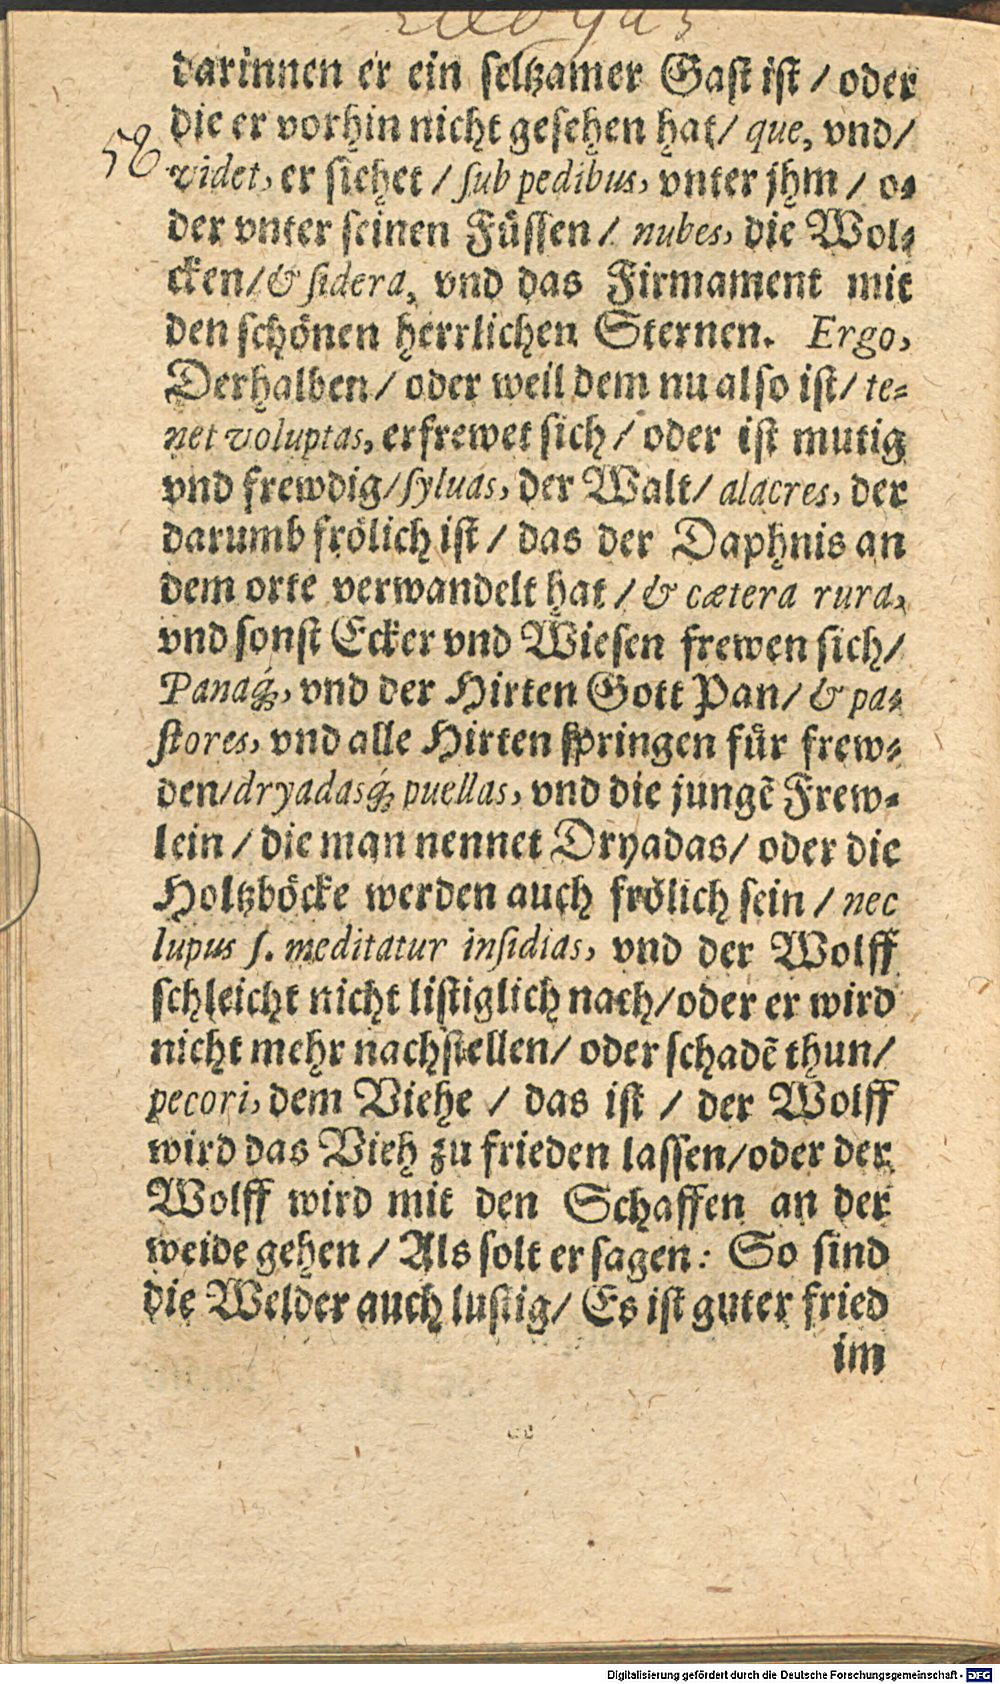 darinnen er ein seltzamer Gast ist / oder
die er vorhin nicht gesehen hat / que, vnd /
58
videt, er siehet / sub pedibus, vnter jhm / o⸗
der vnter seinen Füssen / nubes, die Wol⸗
cken / & sidera, vnd das Firmament mit
den schönen herrlichen Sternen. Ergo,
Derhalben / oder weil dem nu also ist / te-
net voluptas, erfrewet sich / oder ist mutig
vnd frewdig / syluas, der Walt / alacres, der
darumb frölich ist / das der Daphnis an
dem orte verwandelt hat / & cætera rura,
vnd sonst Ecker vnd Wiesen frewen sich /
Panaq́;, vnd der Hirten Gott Pan / & pa-
stores, vnd alle Hirten springen für frew⸗
den / dryadasq́; puellas, vnd die jungẽ Frew⸗
lein / die man nennet Dryadas / oder die
Holtzböcke werden auch frölich sein / nec
lupus s. meditatur insidias, vnd der Wolff
schleicht nicht listiglich nach / oder er wird
nicht mehr nachstellen / oder schadẽ thun /
pecori, dem Viehe / das ist / der Wolff
wird das Vieh zu frieden lassen / oder der
Wolff wird mit den Schaffen an der
weide gehen / Als solt er sagen: So sind
die Welder auch lustig / Es ist guter fried
im
Digitalisierung gefördert durch die Deutsche Forschungsgemeinschaft - DFG